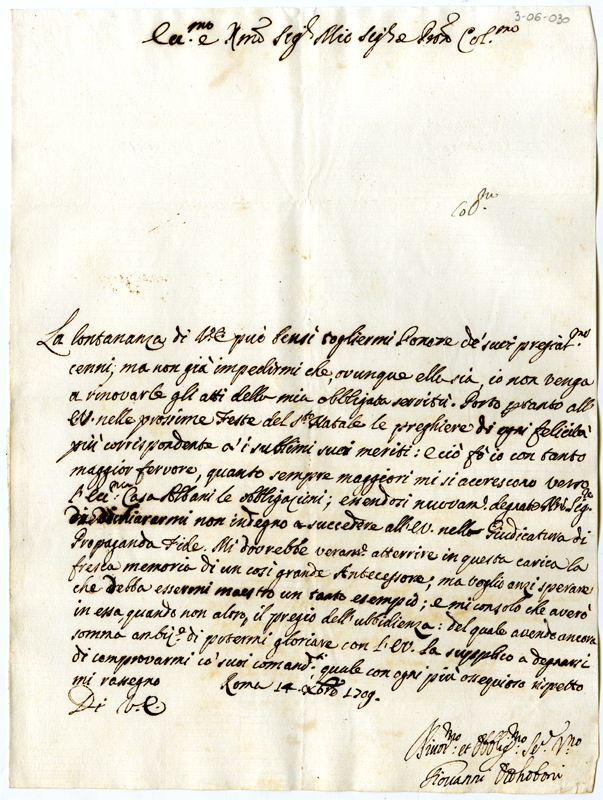 3-06-030
Ecc.mo e R.mo Sig.r Mio Sig.re e Pron Col.mo
La lontananza di V.E. può bensì togliermi l'onore de' suoi pregiat.mi
cenni; ma non già impedirmi che, ovunque ella sia, io non venga
a rinovarle gli atti della mia obbligata servitù. Porto pertanto all'
E.V. nelle prossime Feste del S.to Natale le preghiere di ogni felicità
più corrispondente a' i sublimi suoi meriti: e ciò fò io con tanto
maggior fervore, quanto sempre maggiori mi si accrescono verso
l'Ecc.ma Casa Albani le obbligazioni; essendosi nuovam.te degnate N.ro Sig.re
di dichiararmi non indegno a succedere all'E.V. nella Giudicatura di
Propaganda Fide. Mi dovrebbe veram.te atterrire in questa carica la
fresca memoria di un così grande Antecessore; ma voglio anzi sperare
che debba essermi maestro un tanto esempio; e mi consolo che averò
in essa, quando non altro, il pregio dell'ubbidienza: del quale avendo ancora
somma ambiz.e di potermi gloriare con l'E.V. La supplico a degnarsi
di comprovarmi co' suoi comandi, quale con ogni più ossequioso rispetto
mi rassegno Roma 14. Xbre 1709.
Di V.E.
Divot.mo et Obblig.mo Se.r V.mo
Giovanni Otthoboni